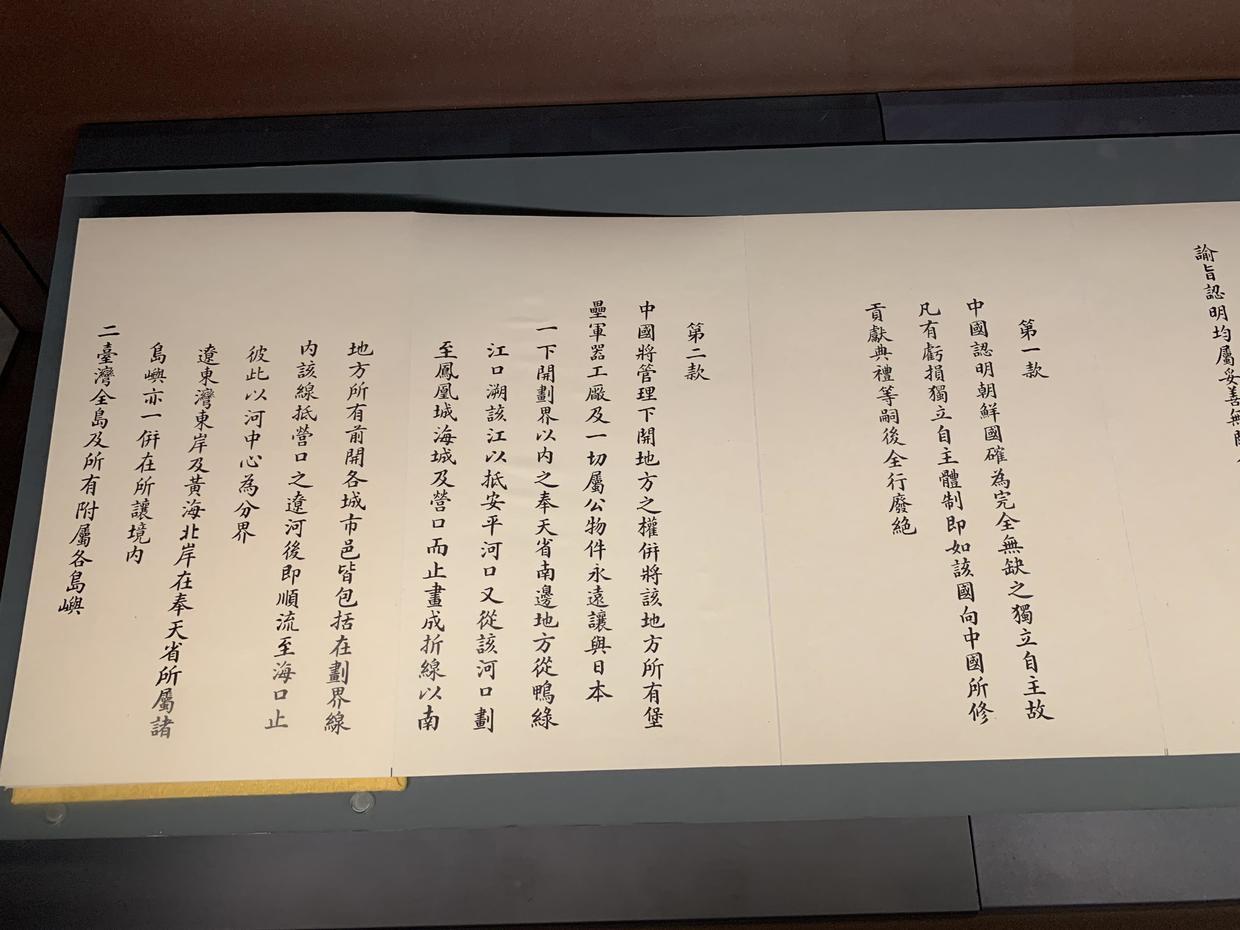 諭旨認明均屬妥善無闕
第一款
中國認明朝鮮國確為完全無缺之獨立自主故
凡有虧損獨立自主體制即如該國向中國所修
貢獻典禮等嗣後全行廢絕
第二款
中國將管理下開地方之權併將該地方所有堡
壘軍器工廠及一切屬公物件永遠讓與日本
一下開劃界以內之奉天省南邊地方從鴨綠
江口溯該江以抵安平河口又從該河口劃
至鳳凰城海城及營口而止畫成折線以南
地方所有前開各城市邑皆包括在劃界線
內該線抵營口之遼河後即順流至海口止
彼此以河中心為分界
遼東灣東岸及黃海北岸在奉天省所屬諸
島嶼亦一併在所讓境內
二臺灣全島及所有附屬各島嶼